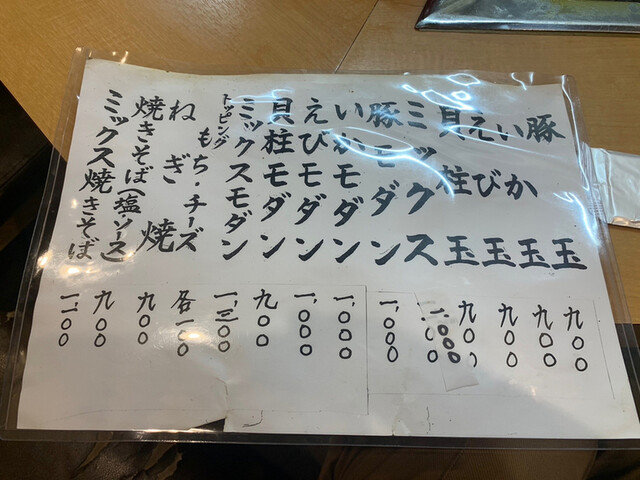 豚玉 九〇〇
いか玉 九〇〇
えび玉 九〇〇
貝柱玉 九〇〇
ミックス 一、〇〇〇
豚モダン 一、〇〇〇
いかモダン 一、〇〇〇
えびモダン 一、〇〇〇
貝柱モダン 九〇〇
ミックスモダン 一、三〇〇
トッピング もち・チーズ 各一〇〇
ねぎ焼 九〇〇
焼きそば(塩・ソース) 九〇〇
ミックス焼きそば 一、一〇〇